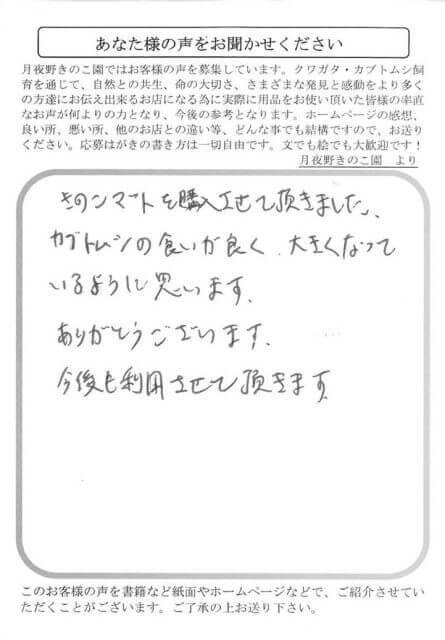 あなた様の声をお聞かせください
月夜野きのこ園ではお客様の声を募集しています。クワガタ・カブトムシ飼
育を通じて、自然との共生、命の大切さ、さまざまな発見と感動をより多く
の方達にお伝え出来るお店になる為に実際に用品をお使い頂いた皆様の率直
なお声が何よりの力となり、今後の参考となります。ホームページの感想、
良い所、悪い所、他のお店との違い等、どんな事でも結構ですので、お送り
ください。応募はがきの書き方は一切自由です。文でも絵でも大歓迎です！
月夜野きのこ園 より
きのこマットを購入させて頂きました、
カブトムシの食いが良く、大きくなって
いるように思います。
ありがとうございます。
今後も利用させて頂きます。
このお客様の声を書籍など紙面やホームページなどで、ご紹介させてい
ただくことがございます。ご了承の上お送り下さい。